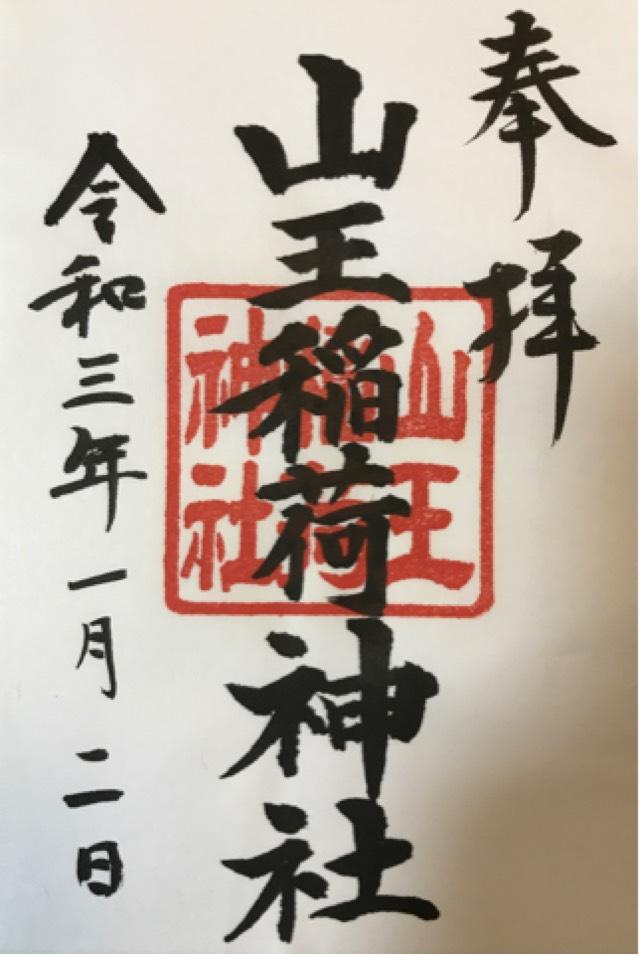 奉拝
山王稲荷神社
山王稲荷神社
令和三年一月二日